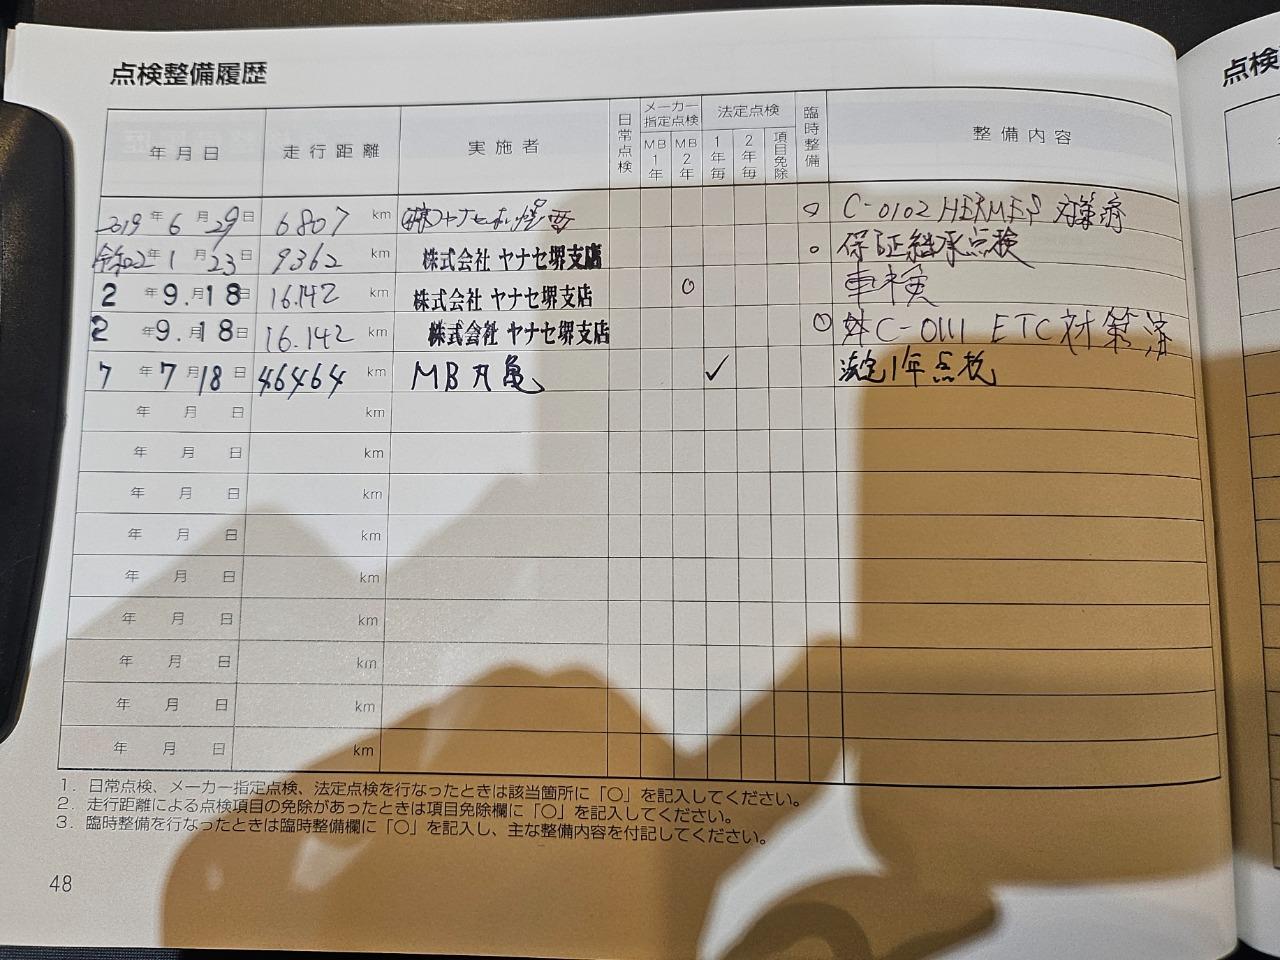 点検整備履歴
点検
年月日 走行距離 実施者 日常点検 メーカー指定点検 MB1年 MB2年 法定点検 1年毎 2年毎 項目免除 臨時整備 整備内容
2019年6月29日 6807km ㈱ヤナセ ○ C-0102 HERMES 対策済
令和2年1月23日 9362km 株式会社 ヤナセ堺支店 ○ 保証継承点検
2年9.月18日 16.142km 株式会社 ヤナセ堺支店 ○ 車検
2年9.月18日 16.142km 株式会社 ヤナセ堺支店 ○ 外C-0111 ETC対策済
7年7月18日 46464km MB丸亀 ✓ 法定1年点検
年 月 日 km
年 月 日 km
年 月 日 km
年 月 日 km
年 月 日 km
年 月 日 km
年 月 日 km
年 月 日 km
年 月 日 km
1. 日常点検、メーカー指定点検、法定点検を行なったときは該当箇所に「○」を記入してください。
2. 走行距離による点検項目の免除があったときは項目免除欄に「○」を記入してください。
3. 臨時整備を行なったときは臨時整備欄に「○」を記入し、主な整備内容を付記してください。
48